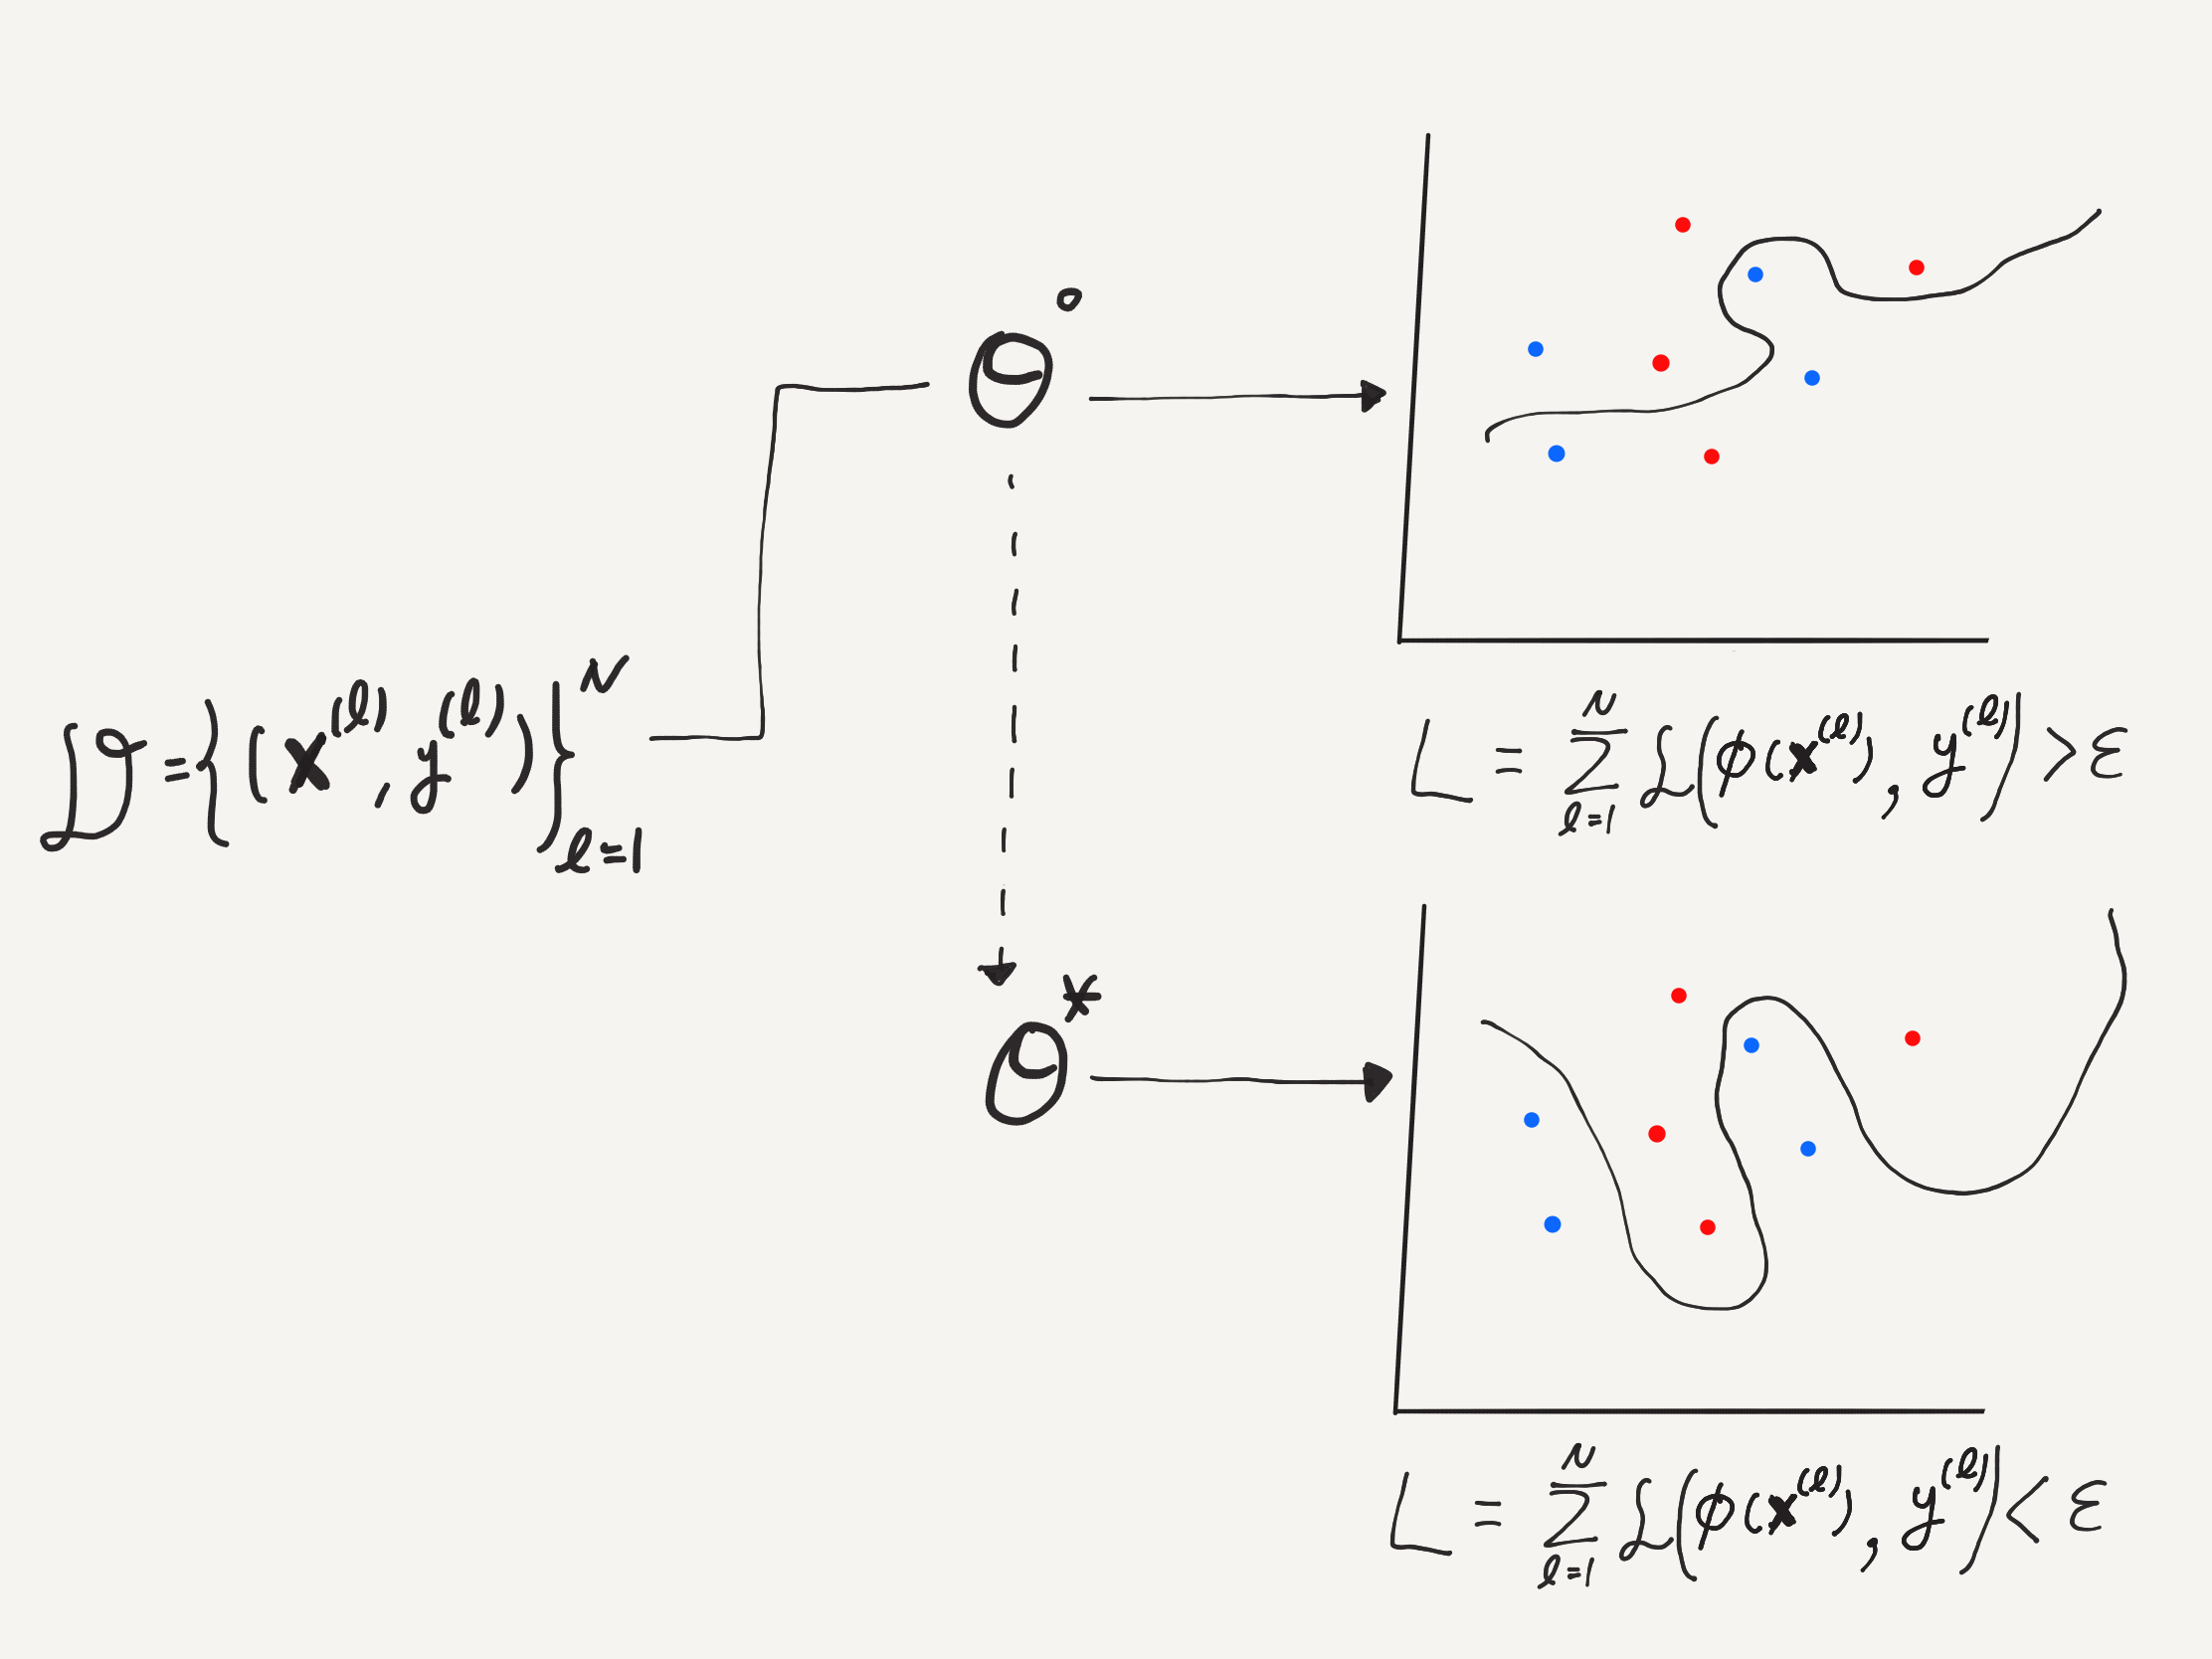 𝒟 = {(x^(ℓ), y^(ℓ))}_{ℓ=1}^N
θ^0
L = Σ_{ℓ=1}^N ℒ(φ(x^(ℓ)), y^(ℓ)) > ε
θ^*
L = Σ_{ℓ=1}^N ℒ(φ(x^(ℓ)), y^(ℓ)) < ε